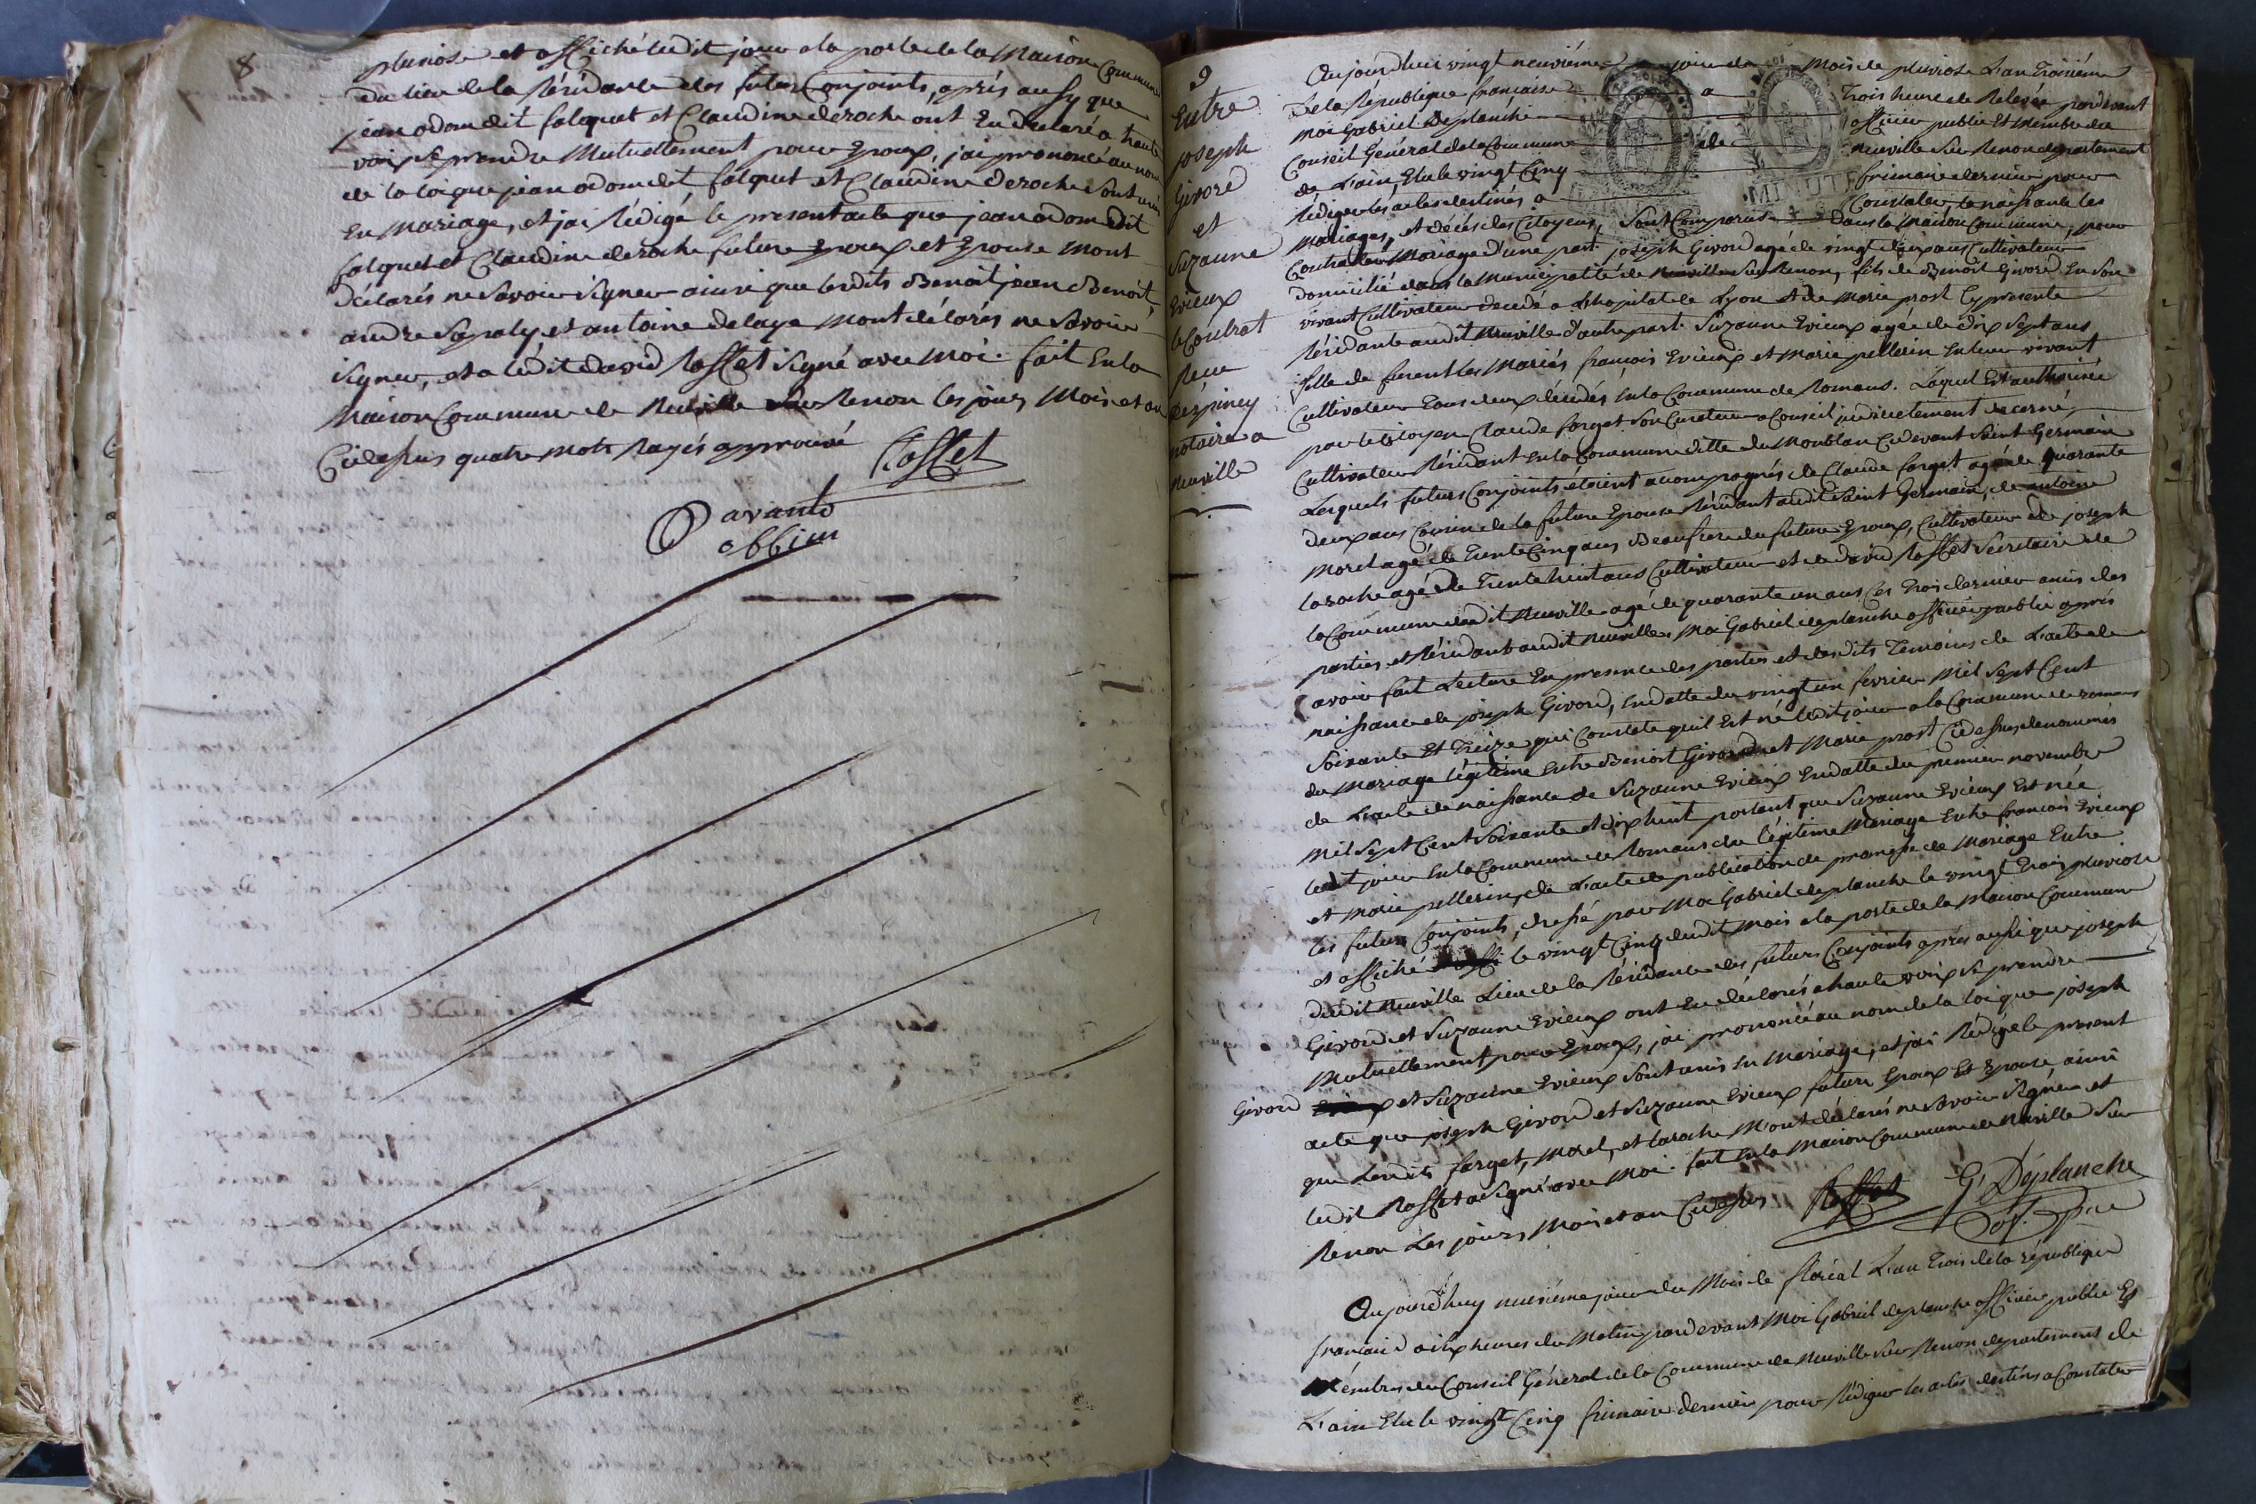 8
pluviose et affiché ledit jour a la porte de la Maison Commune
du lieu de la Résidance des futurs Conjoints, après aussy que
jean odom dit falquet et Claudine deroche ont Eu déclaré a haute
voix se prendre Mutuellement pour Epoux, j'ai prononcé au nom
de la loi que jean odom dit falquet et Claudine deroche sont unis
En Mariage, et j'ai Rédigé le present acte que jean odom dit
falquet et Claudine deroche future Epoux et Epouse Mont
Déclarés ne Savoir Signer ainsi que lesdits Benoit jean Benoit,
andre et antoine delaye Mont déclarés ne Savoir
Signer, et a ledit david Rosset Signé avec Moi. fait En la
Maison Commune de Neuville Sur Renon les jours Mois et an
Cidessus quatre mots Rayés approuvé Rosset
9
Entre
joseph
Givord
et
Suzanne
Evieux
le Contrat
Recu
Despiney
notaire a
Neuville
Aujourdhui vingt neuvième jour du Mois de pluviose L'an Troisième
De la République française a Trois heure de Relevée pardevant
Moi Gabriel Deplanche officier public Et Membre du
Conseil Général de la Commune de Neuville Sur Renon departement
de L'ain, Elu le vingt Cinq frimaire dernier pour
Rédiger les actes destinés a Constater la naissance les
Mariages, et décès des Citoyens, Sont Comparus dans la Maison Commune, pour
Contracter Mariage d'une part joseph Givord agé de vingt deux ans Cultivateur
domicilié dans la Municipalité de Neuville Sur Renon, fils de Benoit Givord En Son
vivant Cultivateur decedé a L'hopital de Lyon et de Marie prost Cy presente
Résidante audit Neuville d'autre part Suzanne Evieux agée de dix Sept ans
fille de furent les Mariés françois Evieux et Marie pellerin En leur vivant
Cultivateur tous deux décédés En la Commune de Romans. Laquel Est authorisée
par le Citoyen Claude forget Son Curateur a Conseil judiciretement decerné,
Cultivateur Résidant En la Commune ditte du Montblan Cidevant Saint Germain
Lesquels futurs Conjoints étoient acompagnés de Claude forget agé de quarante
deux ans Cousin de la future Epouse Résidant audit Saint Germain, de antoine
Morel agé de Trente Cinq ans Beaufrere du future Epoux, Cultivateur et de joseph
laroche agé de Trente huit ans Cultivateur et de david Rosset Secretaire de
la Commune dudit Neuville agé de quarante un ans Ces Trois dernier amis des
parties et Résidant audit Neuville Moi Gabriel deplanche officier public après
avoir fait Lecture En presence des parties et desdits Temoins de L'acte de
naissance de joseph Givord, En datte du vingt un fevrier Mil Sept Cent
Soixante Et Treize qui Constate quil Est né ledit jour a la Commune de romans
du Mariage légitime Entre Benoit Givord et Marie prost Cidessus denommés
de L'acte de naissance de Suzanne Evieux En datte du premier novembre
Mil Sept Cent Soixante et dixhuit portant que Suzanne Evieux Est née
ledit jour En la Commune de Romans du légitime Mariage Entre francois Evieux
et Marie pellerin, de L'acte de publication de promesse de Mariage Entre
les futurs Conjoints, dressé par Moi Gabriel deplanche le vingt Trois pluviose
et affiché le vingt Cinq dudit Mois a la porte de la Maison Commune
dudit Neuville Lieu de la Résidance des futurs Conjoints après aussi que joseph
Givord et Suzanne Evieux ont Eu déclarés a haute voix Se prendre
Mutuellement pour Epoux, j'ai prononcé au nom de la loi que joseph
Givord et Suzanne Evieux Sont unis En Mariage, et j'ai Rédigé le present
acte que joseph Givord et Suzanne Evieux future Epoux Et Epouse ainsi
que Lesdits forget, Morel, et laroche M'ont déclarés ne Savoir Signer et
ledit Rosset a Signé avec Moi. fait En la Maison Commune de Neuville Sur
Renon Les jours Mois et an Cidessus Rosset G. Déplanche
Aujourdhuy jour du Mois de floréal L'an Trois de la république
française a dix heures du Matin pardevant Moi Gabriel deplanche officier public Et
Membre du Conseil Général de la Commune de Neuville Sur Renon departement de
L'ain Elu le vingt Cinq frimaire dernier pour Rédiger les actes destinés a Constater